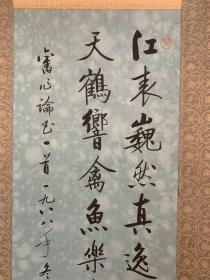 江表巍然真逸
天鶴響禽魚樂
舊作論書一首一九八八年冬